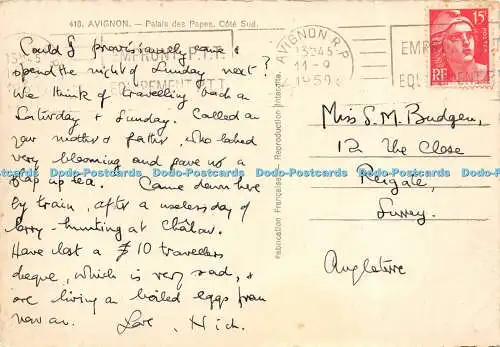 410. AVIGNON. — Palais des Papes. Côté Sud.
Could I provisionally come &
spend the night of Sunday next?
We think of travelling back on
Saturday & Sunday. Called on
your mother & father, who looked
very blooming and gave us a
slap up tea. Came down here
by train, after a useless day of
lorry-hunting at Châlon.
Have lost a £10 travellers
cheque, which is very sad, &
are living on boiled eggs from
now on. Love, Nick.
Fabrication Française - Reproduction Interdite
EMPRUNT P.T.T.
EQUIPEMENT
AVIGNON R.P.
1345
11-9
1950
EMPRUNT
EQUIPEMENT
15F
POSTES
RF
Miss S. M. Budgen,
12 The Close
Reigate,
Surrey.
Angleterre
Dodo-Postcards Dodo-Postcards Dodo-Postcards Dodo-Postcards Dodo-Postcards